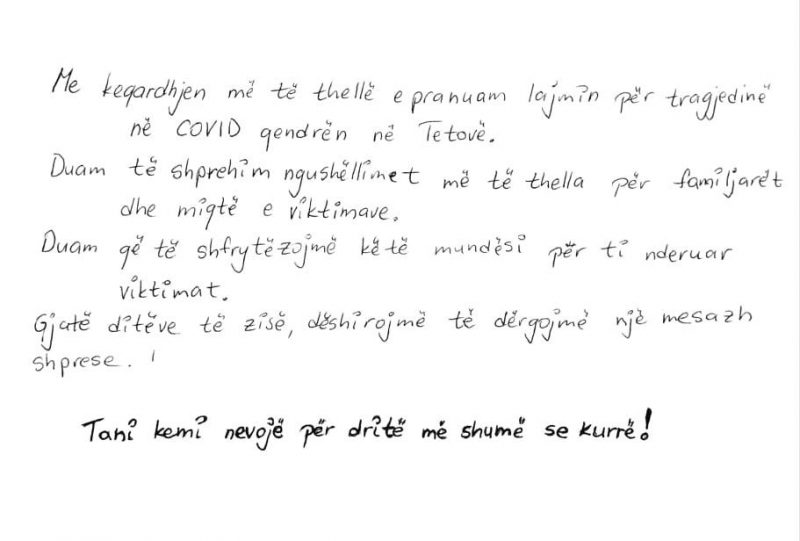 Me keqardhjen më të thellë e pranuam lajmin për tragjedinë
në COVID qendrën në Tetovë.
Duam të shprehim ngushëllimet më të thella për familjarët
dhe miqtë e viktimave.
Duam që të shfrytëzojmë këtë mundësi për ti nderuar
viktimat.
Gjatë ditëve të zisë, dëshirojmë të dërgojmë një mesazh
shprese.
Tani kemi nevojë për dritë më shumë se kurrë!